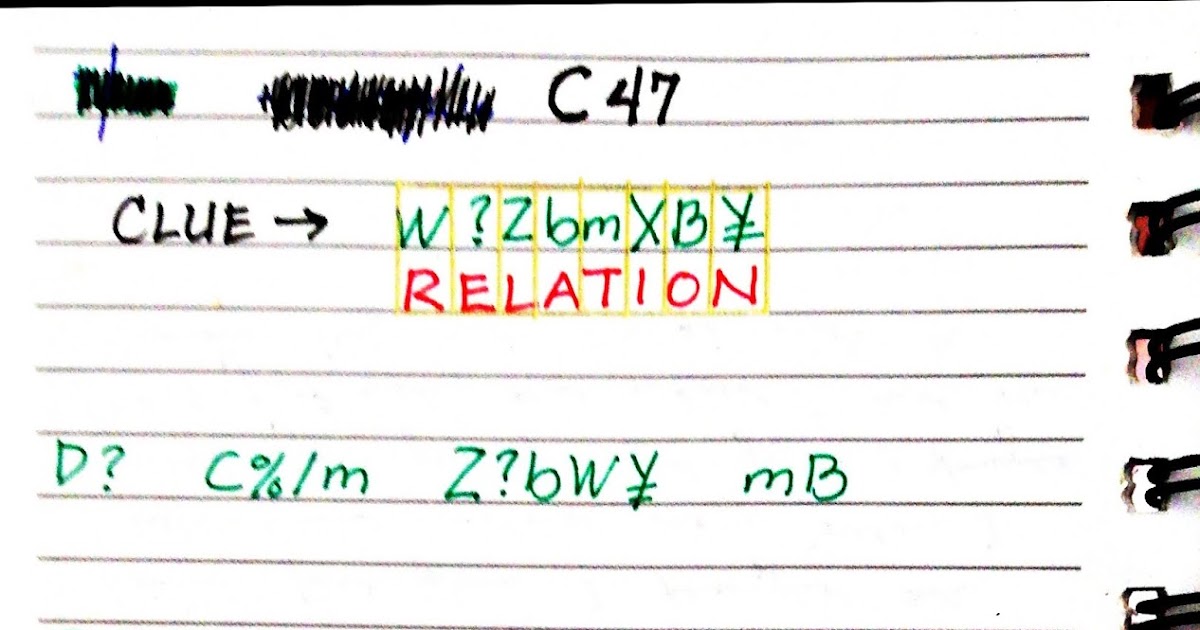 C 47
CLUE → W?ZbmXB¥
RELATION
D? C%/m Z?bW¥ mB